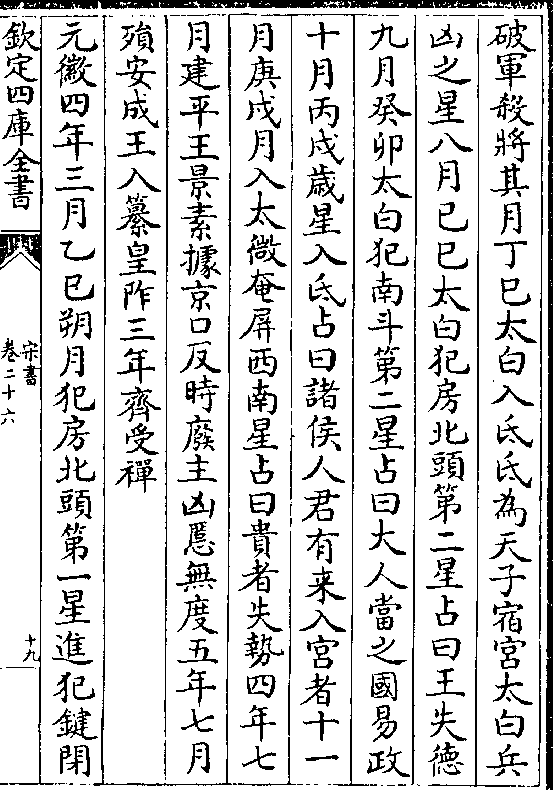 破軍殺將其月丁巳太白入氐氐為天子宿宮太白兵
凶之星八月己巳太白犯房北頭第二星占曰王失德
九月癸卯太白犯南斗第二星占曰大人當之國易政
十月丙戌歲星入氐占曰諸侯人君有来入宮者十一
月庚戌月入太微奄屏西南星占曰貴者失勢四年七
月建平王景素據京口反時廢主凶慝無度五年七月
殞安成王入纂皇阼三年齊受禪
元徽四年三月乙巳朔月犯房北頭第一星進犯鍵閉
欽定四庫全書
宋書
卷二十六
十九